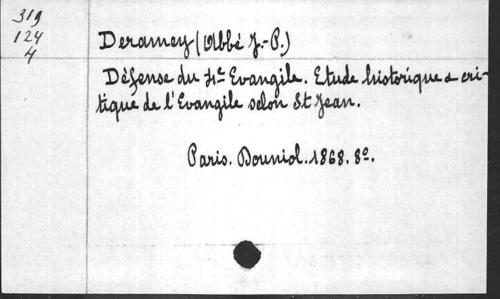 319
124
4
Deramey (Abbé J.-P.)
Défense du 4e Evangile. Etude historique & cri-
tique de l'Evangile selon St Jean.
Paris. Douniol. 1868. 8o.